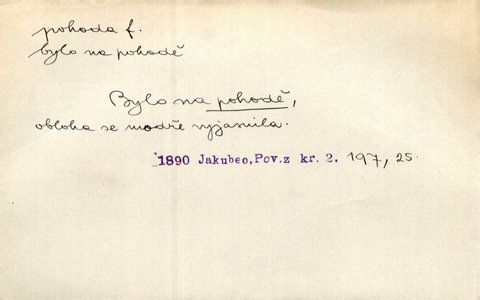 pohoda f.
bylo na pohodě
Bylo na pohodě,
obloha se modře vyjasnila.
1890 Jakubec, Pov.z kr. 2. 197, 25.